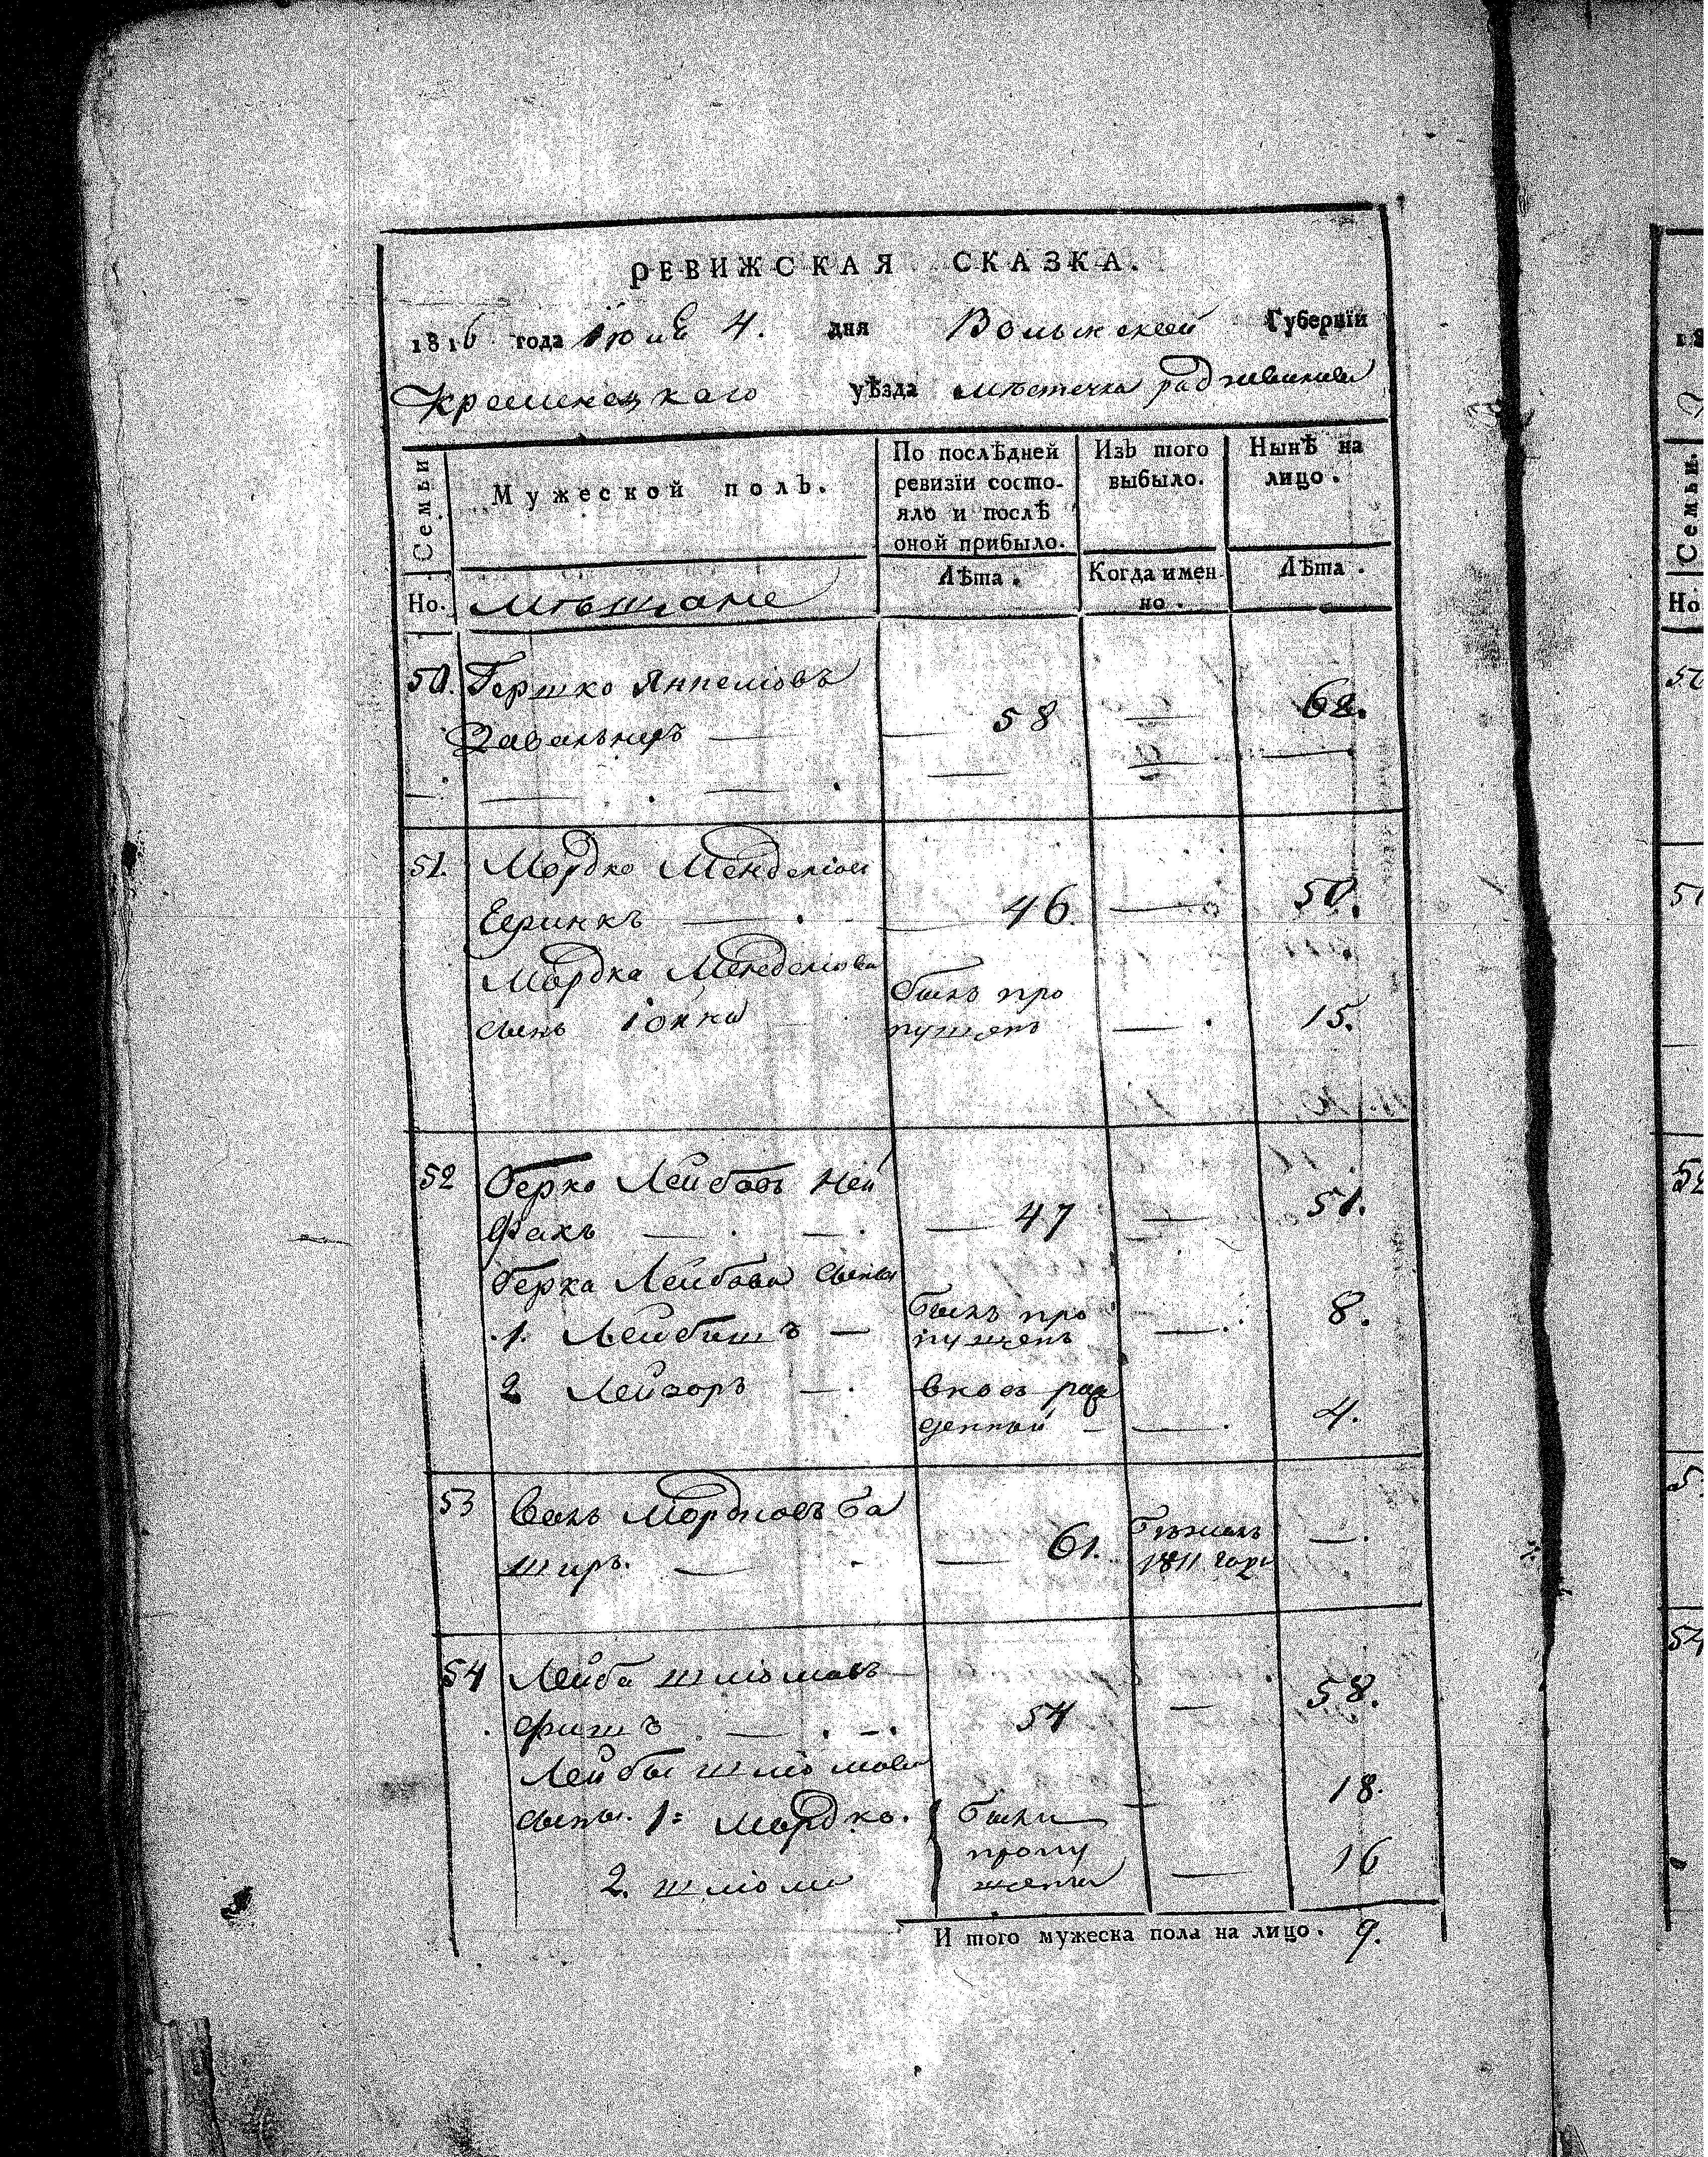 РЕВИЖСКАЯ СКАЗКА.
1816 года Июня 4. дня Волынской Губернїи
Кременецкаго уѣзда мѣстечка радзивилова
Семьи
Мужеской полъ.
По послѣдней ревизїи состо-
яло и послѣ
оной прибыло.
Изъ того
выбыло.
Нынѣ на
лицо.
Но.
мѣщане
Лѣта.
Когда имен
но.
Лѣта.
50. Гершко Янкелiовъ
58 — 62.
51. Мордко Менделiов
46. — 50.
Мордка Менделiова былъ про
сынъ Iонка пущенъ — 15.
52 Берко Лейбовъ Ней
факъ — 47 — 51.
Берка Лейбова сыны
1. Лейбишъ — былъ про
пущенъ — 8.
2 Лейзоръ — вновь раж
денный — 4.
53 Волъ Мордковъ Ба
широ. — 61. бѣжалъ
1811 года —.
54 Лейба шмiомовъ
фишъ — 54 — 58.
Лейбы шлiомова
сыны. 1: мордко. были 18.
пропу
2. шлiома щены — 16
И того мужеска пола на лицо. 9.
Семьи.
Но
51
52
54